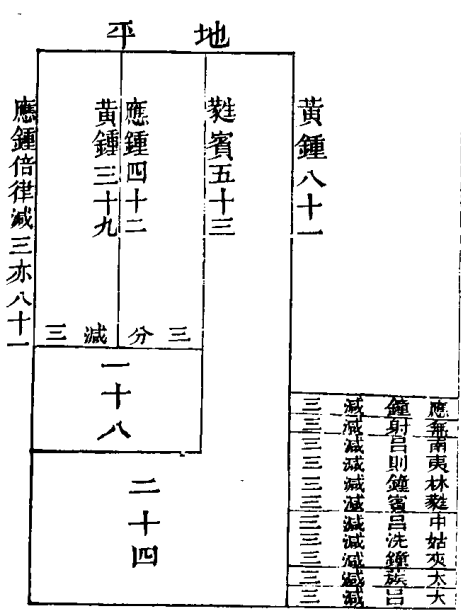 地平
黃鍾八十一
蕤賓五十三
應鍾四十二
黃鍾三十九
應鍾倍律減三亦八十一
三分減三
一十八
二十四
應鐘減三
無射減三
南呂減三
夷則減三
林鐘減三
蕤賓減三
中呂減三
姑洗減三
夾鐘減三
太蔟減三
大呂減三